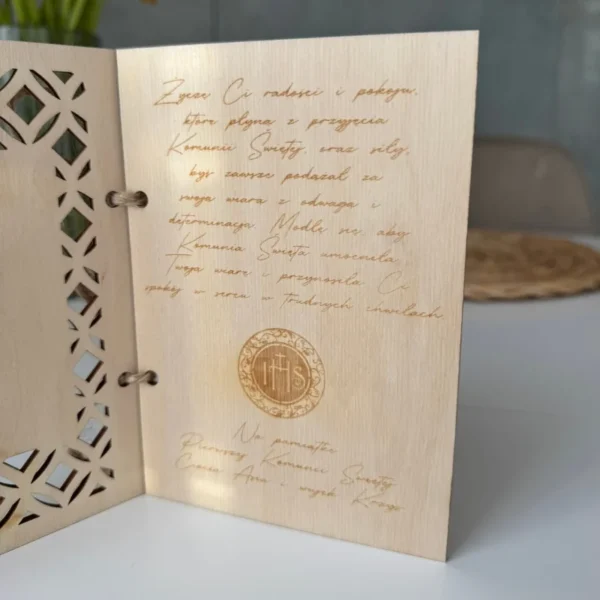 Życzę Ci radości i pokoju,
które płyną z przyjęcia
Komunii Świętej, oraz siły,
byś zawsze podążał za
swoją wiarą z odwagą i
determinacją. Modlę się, aby
Komunia Święta umocniła
Twoją wiarę i przynosiła Ci
spokój w sercu w trudnych chwilach.
IHS
Na pamiątkę
Pierwszej Komunii Świętej
Ciocia Ania i wujek Krzyś